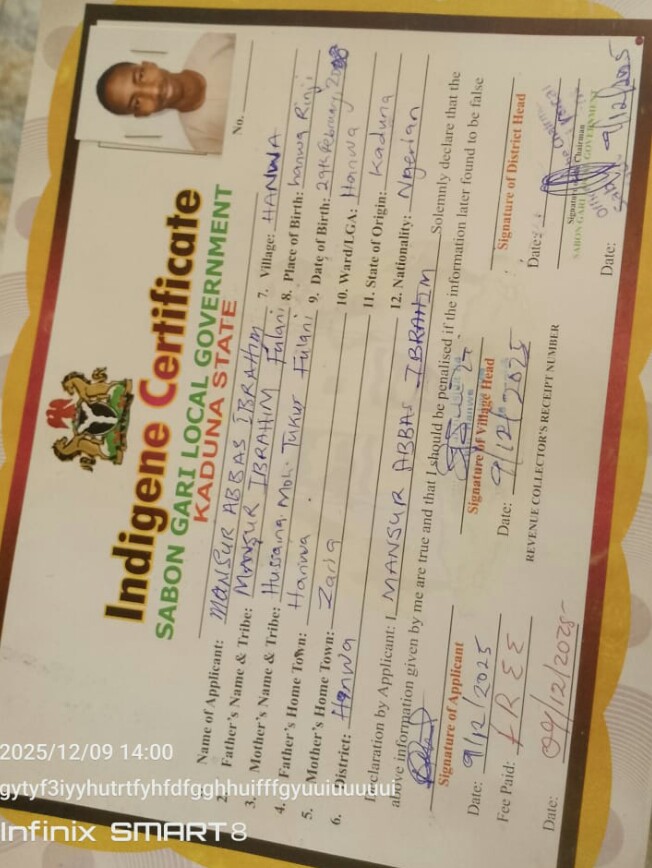 Indigene Certificate
SABON GARI LOCAL GOVERNMENT
KADUNA STATE
No.
Name of Applicant: MANSUR ABBAS IBRAHIM
2. Father's Name & Tribe: MANSUR IBRAHIM Fulani
3. Mother's Name & Tribe: Hussaina Moh. Tukur Fulani
4. Father's Home Town: Hanwa
5. Mother's Home Town: Zaria
6. District: Hanwa
7. Village: HANWA
8. Place of Birth: hanwa
9. Date of Birth: 29th February,
10. Ward/LGA: Hanwa
11. State of Origin: Kaduna
12. Nationality: Nigerian
Declaration by Applicant: I MANSUR ABBAS IBRAHIM Solemnly declare that the
above information given by me are true and that I should be penalised if the information later found to be false
Signature of Applicant
Date: 9/12/2025
Fee Paid: FREE
Date: 09/12/2025
Signature of Village Head
Date: 9/12/2025
REVENUE COLLECTOR'S RECEIPT NUMBER
Signature of District Head
Date:
Chairman
SABON GARI GOVERNMENT
Date: 9/12/2025
2025/12/09 14:00
gytyf3iyyhutrtfyhfdfgghhuifffgyuuiuuuuui
Infinix SMART 8